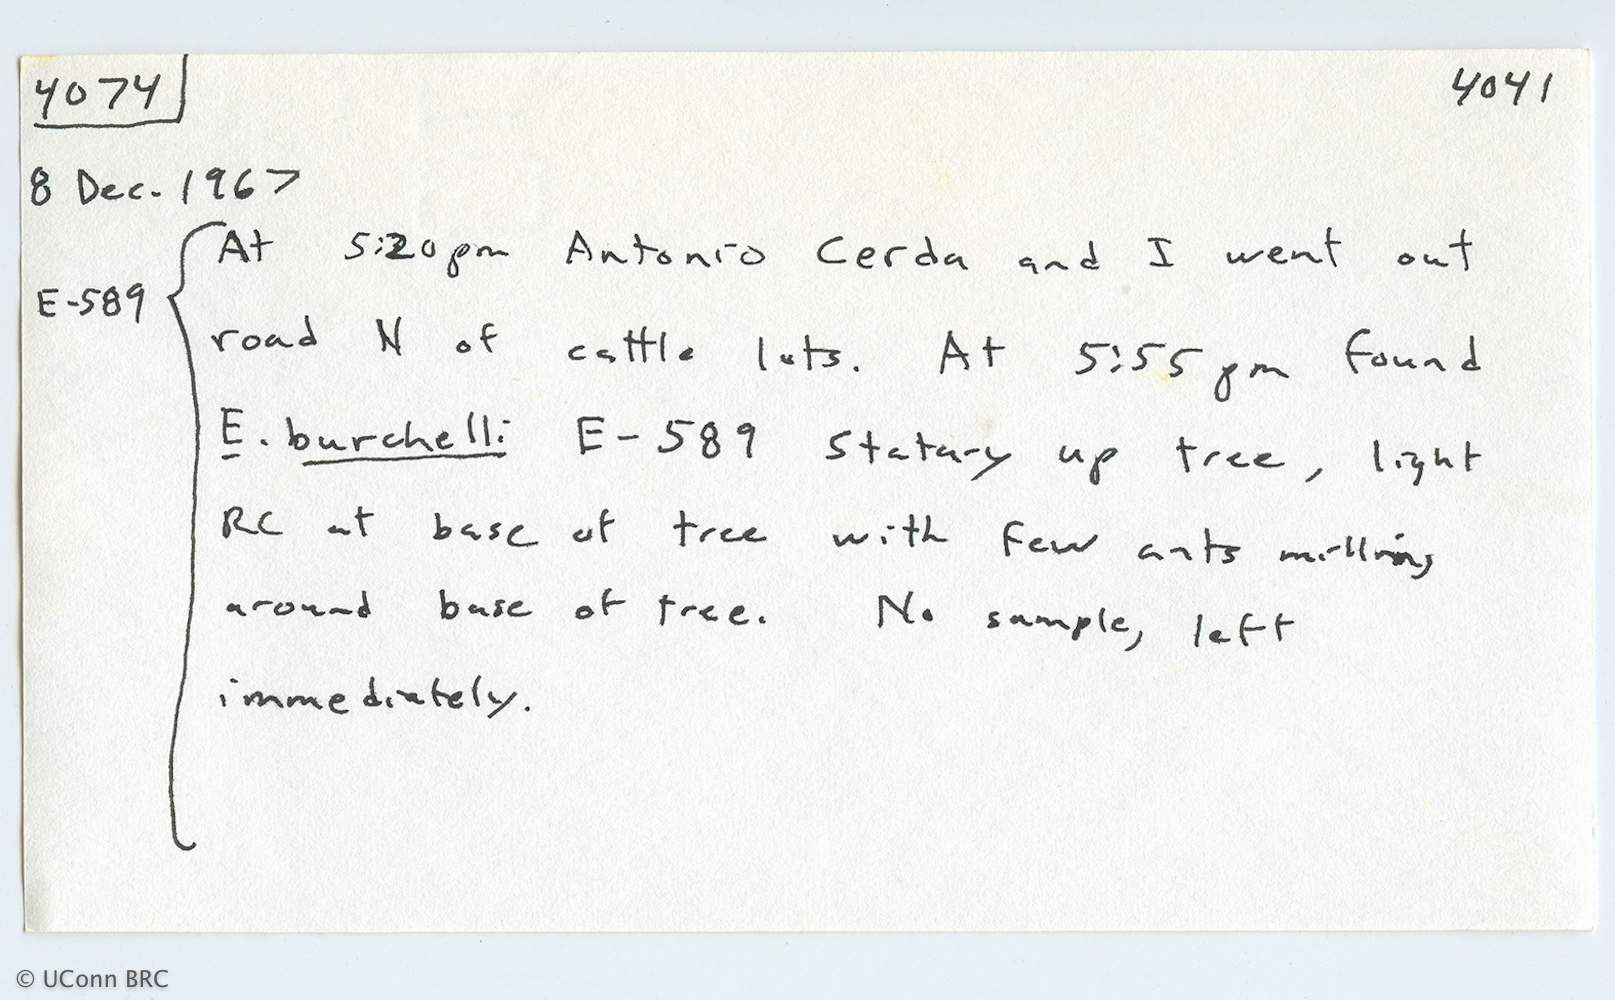 4074
4041
8 Dec. 1967
E-589
At 5:20pm Antonio Cerda and I went out
road N of cattle lots. At 5:55 pm found
E. burchelli E-589 statary up tree, light
RC at base of tree with few ants milling
around base of tree. No sample, left
immediately.
© UConn BRC